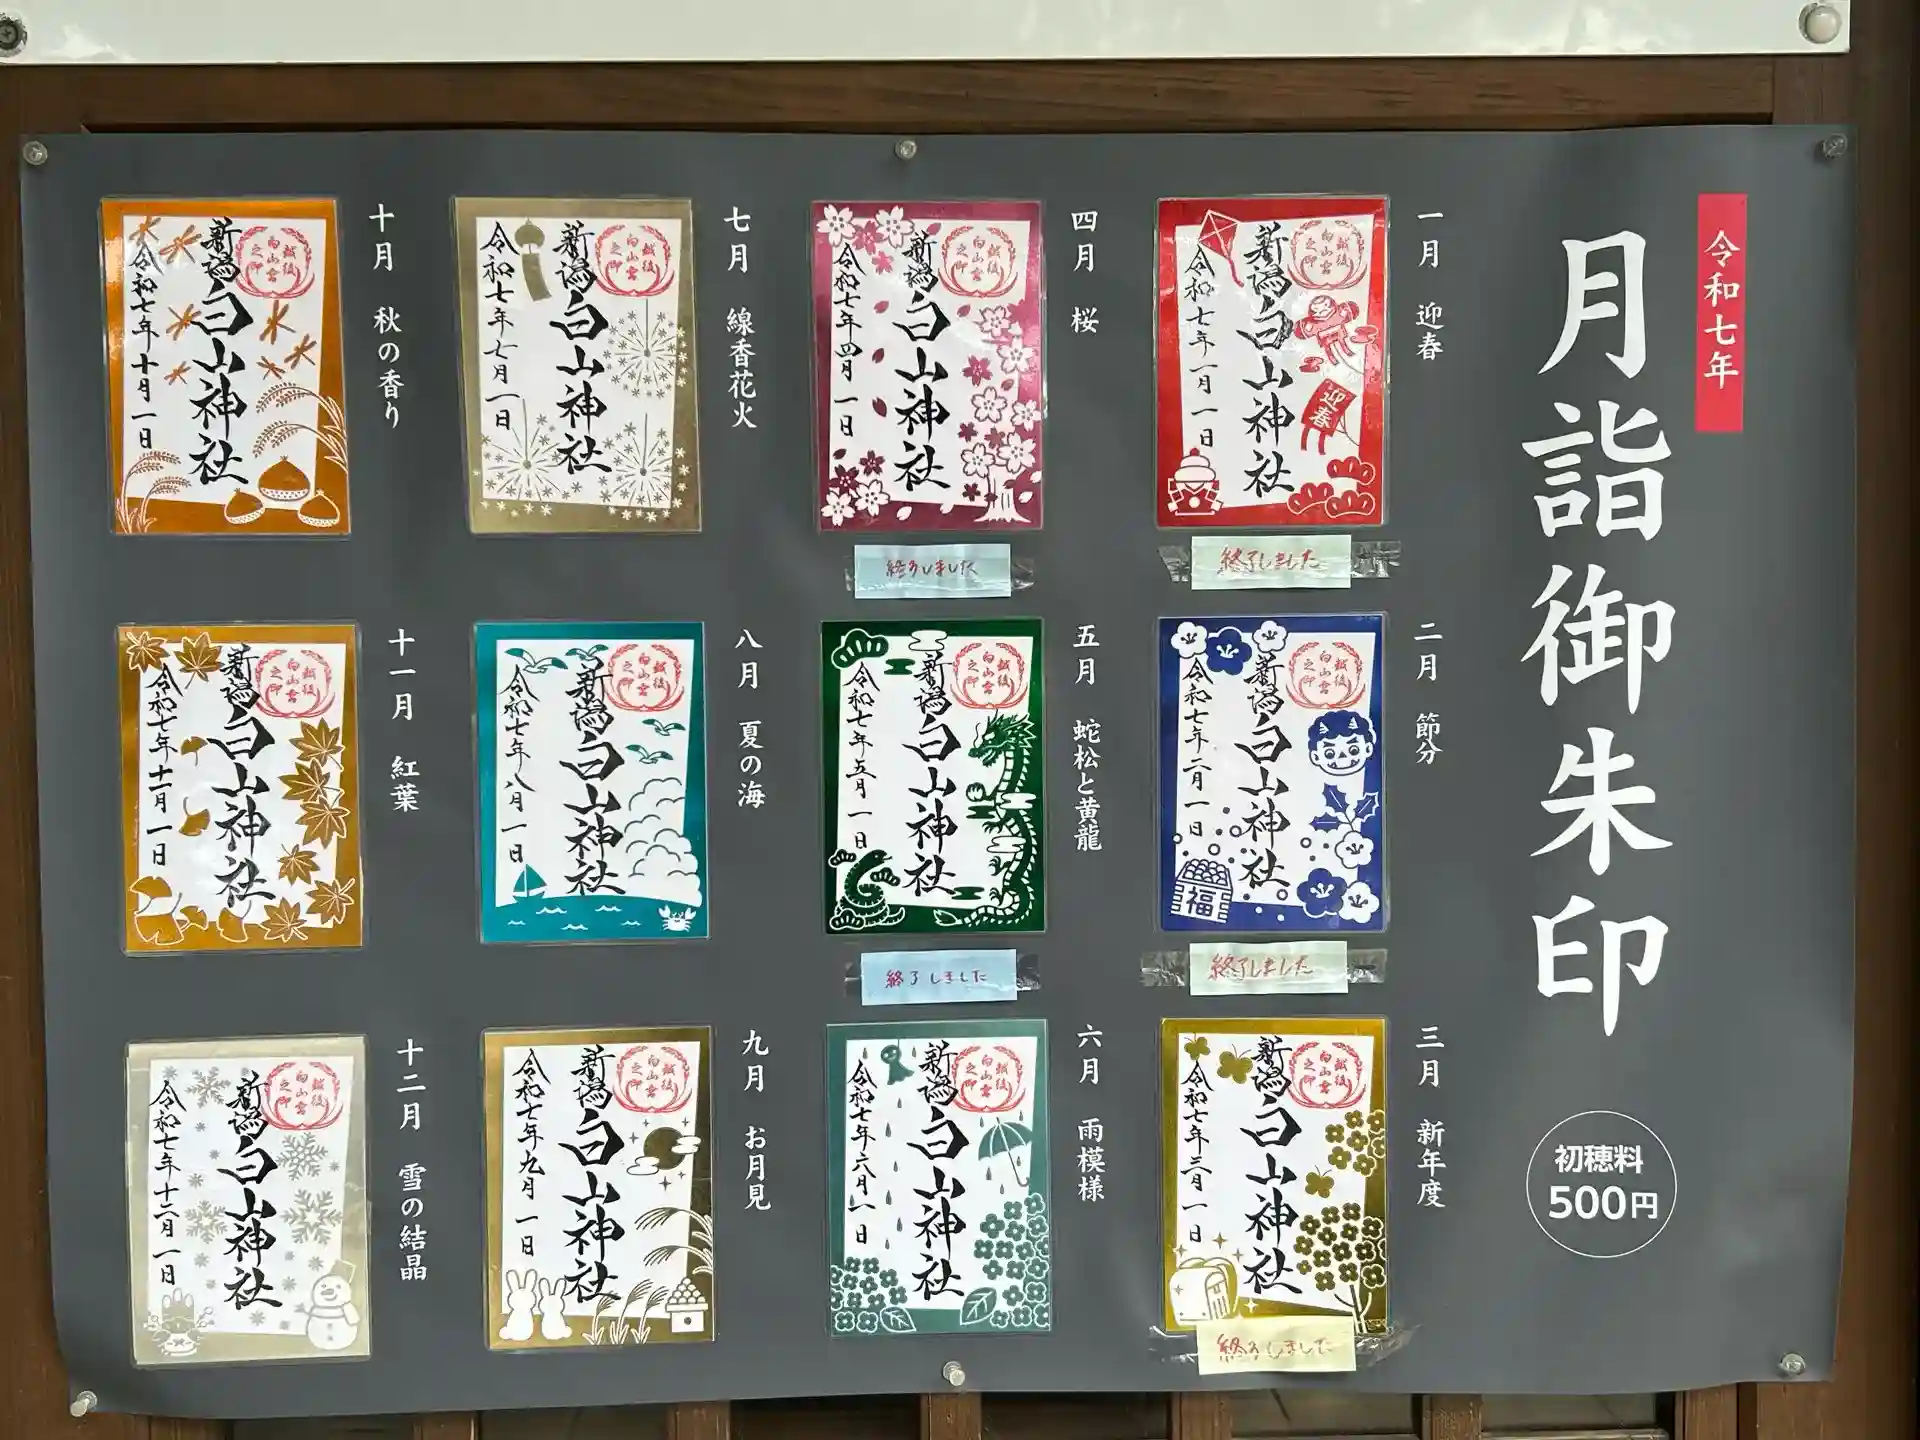 令和七年
月詣御朱印
初穂料
500円
一月 迎春
越後
白山宮
之印
新潟白山神社
迎春
令和七年一月一日
終了しました
二月 節分
越後
白山宮
之印
新潟白山神社
令和七年二月一日
福
終了しました
三月 新年度
越後
白山宮
之印
新潟白山神社
令和七年三月一日
終了しました
四月 桜
越後
白山宮
之印
新潟白山神社
令和七年四月一日
終了しました
五月 蛇松と黄龍
越後
白山宮
之印
新潟白山神社
令和七年五月一日
終了しました
六月 雨模様
越後
白山宮
之印
新潟白山神社
令和七年六月一日
七月 線香花火
越後
白山宮
之印
新潟白山神社
令和七年七月一日
八月 夏の海
越後
白山宮
之印
新潟白山神社
令和七年八月一日
九月 お月見
越後
白山宮
之印
新潟白山神社
令和七年九月一日
十月 秋の香り
越後
白山宮
之印
新潟白山神社
令和七年十月一日
十一月 紅葉
越後
白山宮
之印
新潟白山神社
令和七年十一月一日
十二月 雪の結晶
越後
白山宮
之印
新潟白山神社
令和七年十二月一日